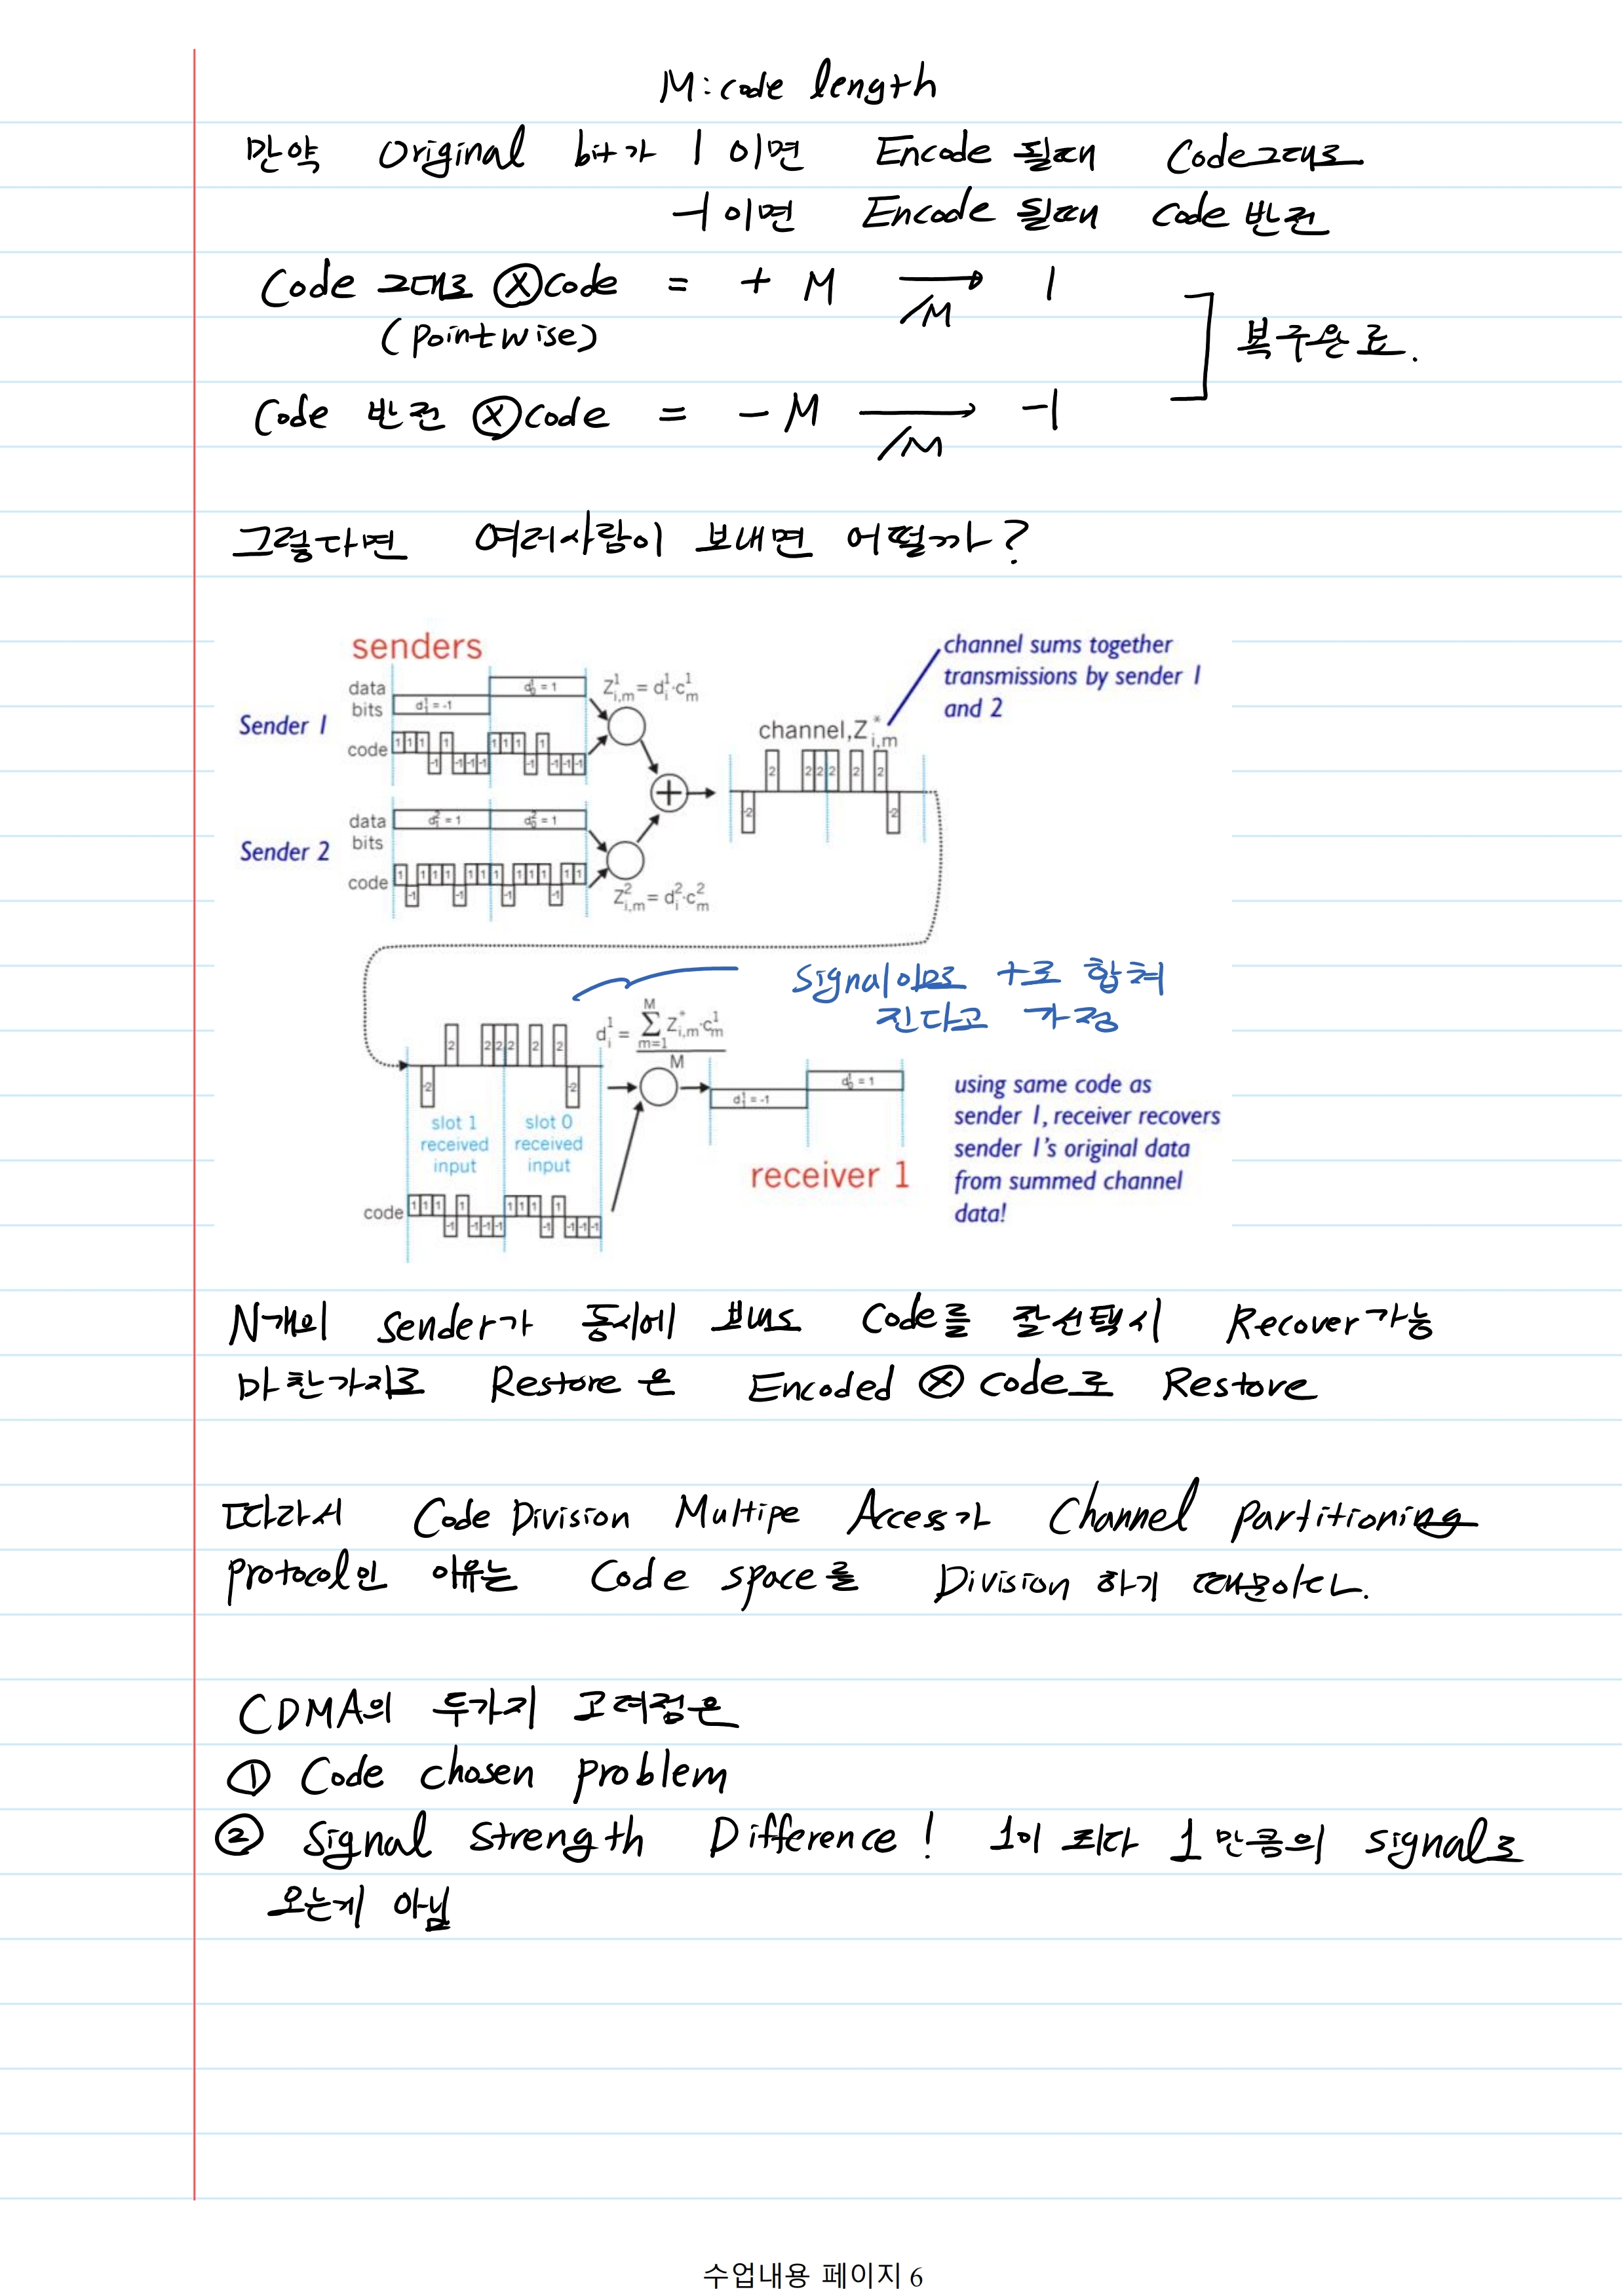 M: code length
만약 Original bit가 1 이면 Encode 될때 Code그대로
-1 이면 Encode 될때 Code 반전
Code 그대로 ⊗ code = + M → /M 1
(pointwise)
복구완료.
Code 반전 ⊗ code = - M → /M -1
그렇다면 여러사람이 보내면 어떨까?
senders
channel sums together
transmissions by sender 1
and 2
Sender 1
data bits
d₁¹ = -1
d₀¹ = 1
Z¹i,m = di¹·cm¹
code
1 1 1 -1 1 -1 -1 -1 1 1 1 -1 1 -1 -1 -1
channel, Z*i,m
-2 2 2 2 2 2 2 -2
Sender 2
data bits
d₁² = 1
d₀² = 1
code
1 -1 1 1 1 -1 1 1 1 -1 1 1 1 -1 1 1
Z²i,m = di²·cm²
Signal이므로 +로 합쳐
진다고 가정
di¹ = Σ(m=1..M) Z*i,m·cm¹ / M
-2 2 2 2 2 2 2 -2
slot 1 received input
slot 0 received input
d₁¹ = -1
d₀¹ = 1
receiver 1
using same code as
sender 1, receiver recovers
sender 1's original data
from summed channel
data!
code
1 1 1 -1 1 -1 -1 -1 1 1 1 -1 1 -1 -1 -1
N개의 Sender가 동시에 보내도 Code를 잘선택시 Recover가능
마찬가지로 Restore은 Encoded ⊗ code로 Restore
따라서 Code Division Multipe Access가 Channel Partitioning
Protocol인 이유는 Code space를 Division 하기 때문이다.
CDMA의 두가지 고려점은
① Code chosen problem
② Signal Strength Difference! 1이 죄다 1만큼의 signal로
오는게 아님
수업내용 페이지 6